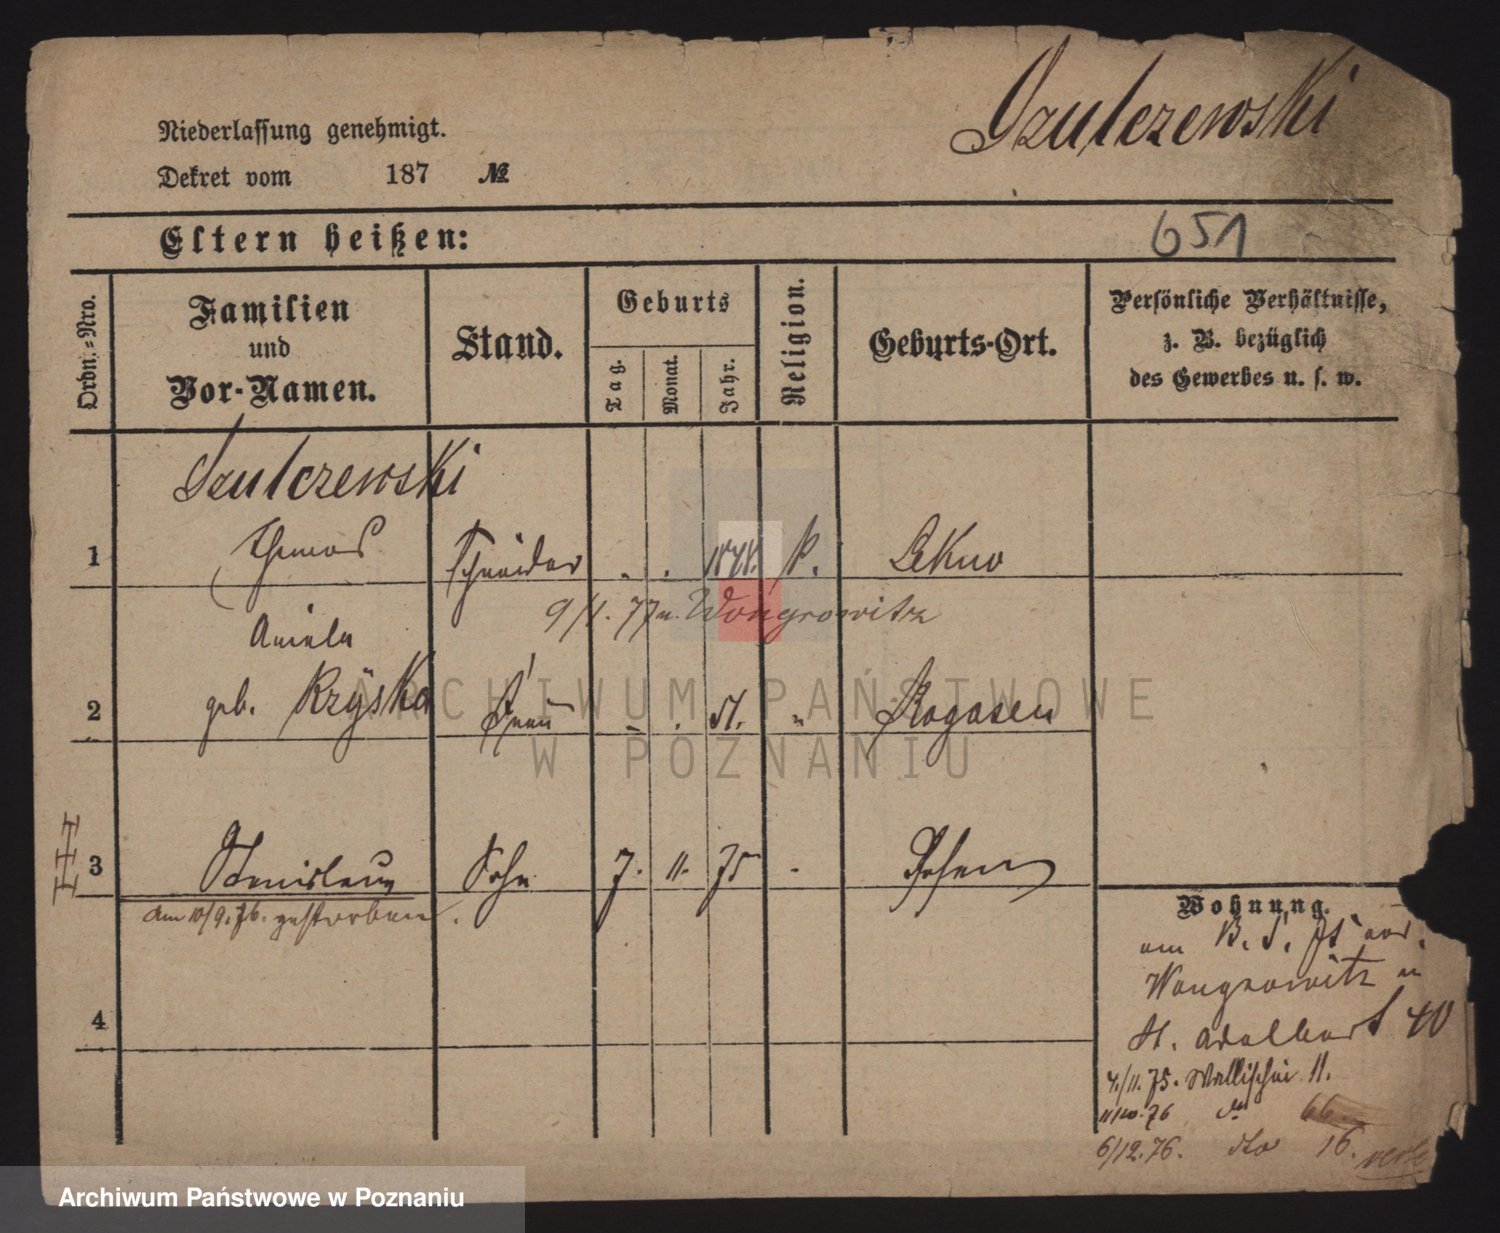 Szulczewski
Niederlassung genehmigt.
Dekret vom 187 №
Eltern heißen:
651
Ordn.-Nro.
Familien
und
Vor-Namen.
Stand.
Geburts
Tag.
Monat.
Jahr.
Religion.
Geburts-Ort.
Persönliche Verhältnisse,
z. B. bezüglich
des Gewerbes u. s. w.
Szulczewski
1 Thomas Schneider . . K. Lekno
9/1. 77 n. Wongrowitz
Aniela
2 geb. Kzyska Frau - . 51. " Rogasen
3 Stanislaus Sohn 7. 11. 75 - Posen
am 10/9. 76. gestorben.
4
Wohnung.
am
Wongrowitz
St. Adalbert 40
4/11. 75. Wallischei 11.
66
6/12. 76. dto 16.
ARCHIWUM PAŃSTWOWE
W POZNANIU
Archiwum Państwowe w Poznaniu